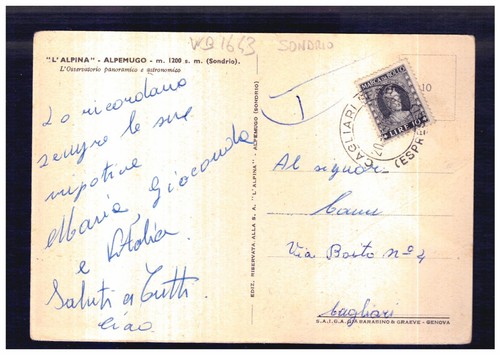 VKB 1643 SONDRIO
"L'ALPINA" - ALPEMUGO - m. 1200 s. m. (Sondrio).
L'Osservatorio panoramico e astronomico
Lo ricordano
sempre le sue
nipotine
Maria, Gioconda
e Vitalia
Saluti a Tutti
Ciao
EDIT. RISERVATA ALLA S. A. "L'ALPINA" - ALPEMUGO (SONDRIO)
MARCA DA BOLLO
LIRE 10
10
CAGLIARI
(ESPR
T
Al signor
Via Boito nº 4
Cagliari
S.A.I.G.A. già BARABINO & GRAEVE - GENOVA